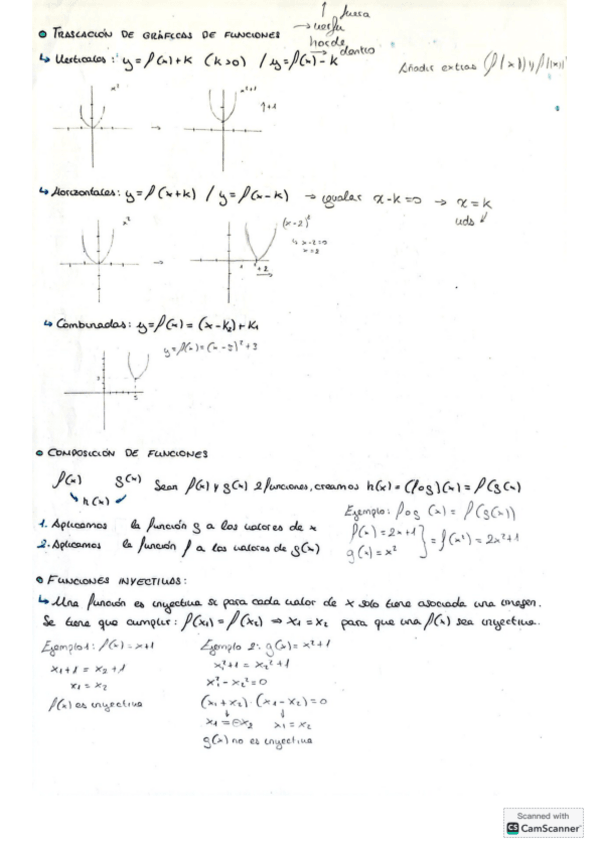 ↑ fuera
→
dentro
TRASLACIÓN DE GRÁFICAS DE FUNCIONES
↳ Verticales: y = f(x)+k (k>0) / y = f(x) - k
Añadir extras f(|x|) y |f(x)|
x²
→
x²+1
↑+1
↳ Horizontales: y = f(x+k) / y = f(x-k) → igualar x-k=0 → x=k
uds
x²
→
(x-2)²
↳ x-2=0
x=2
+2
↳ Combinadas: y=f(x) = (x-k₂)+k₁
COMPOSICIÓN DE FUNCIONES
f(x) g(x) Sean f(x) y g(x) 2 funciones, creamos h(x) = (fog)(x) = f(g(x)
h(x)
Ejemplo: fog (x) = f(g(x))
1. Aplicamos la función g a los valores de x
f(x) = 2x+1
2. Aplicamos la función f a los valores de g(x)
g(x) = x²
} = f(x²) = 2x²+1
FUNCIONES INYECTIVAS:
↳ Una función es inyectiva si para cada valor de x solo tiene asociada una imagen.
Se tiene que cumplir: f(x₁) = f(x₂) ⇒ x₁ = x₂ para que una f(x) sea inyectiva.
Ejemplo 1: f(x) = x+1
x₁+1 = x₂+1
x₁ = x₂
f(x) es inyectiva
Ejemplo 2: g(x) = x²+1
x₁²+1 = x₂²+1
x₁²-x₂²=0
(x₁+x₂)·(x₁-x₂)=0
x₁=-x₂ x₁=x₂
g(x) no es inyectiva
Scanned with
CS CamScanner